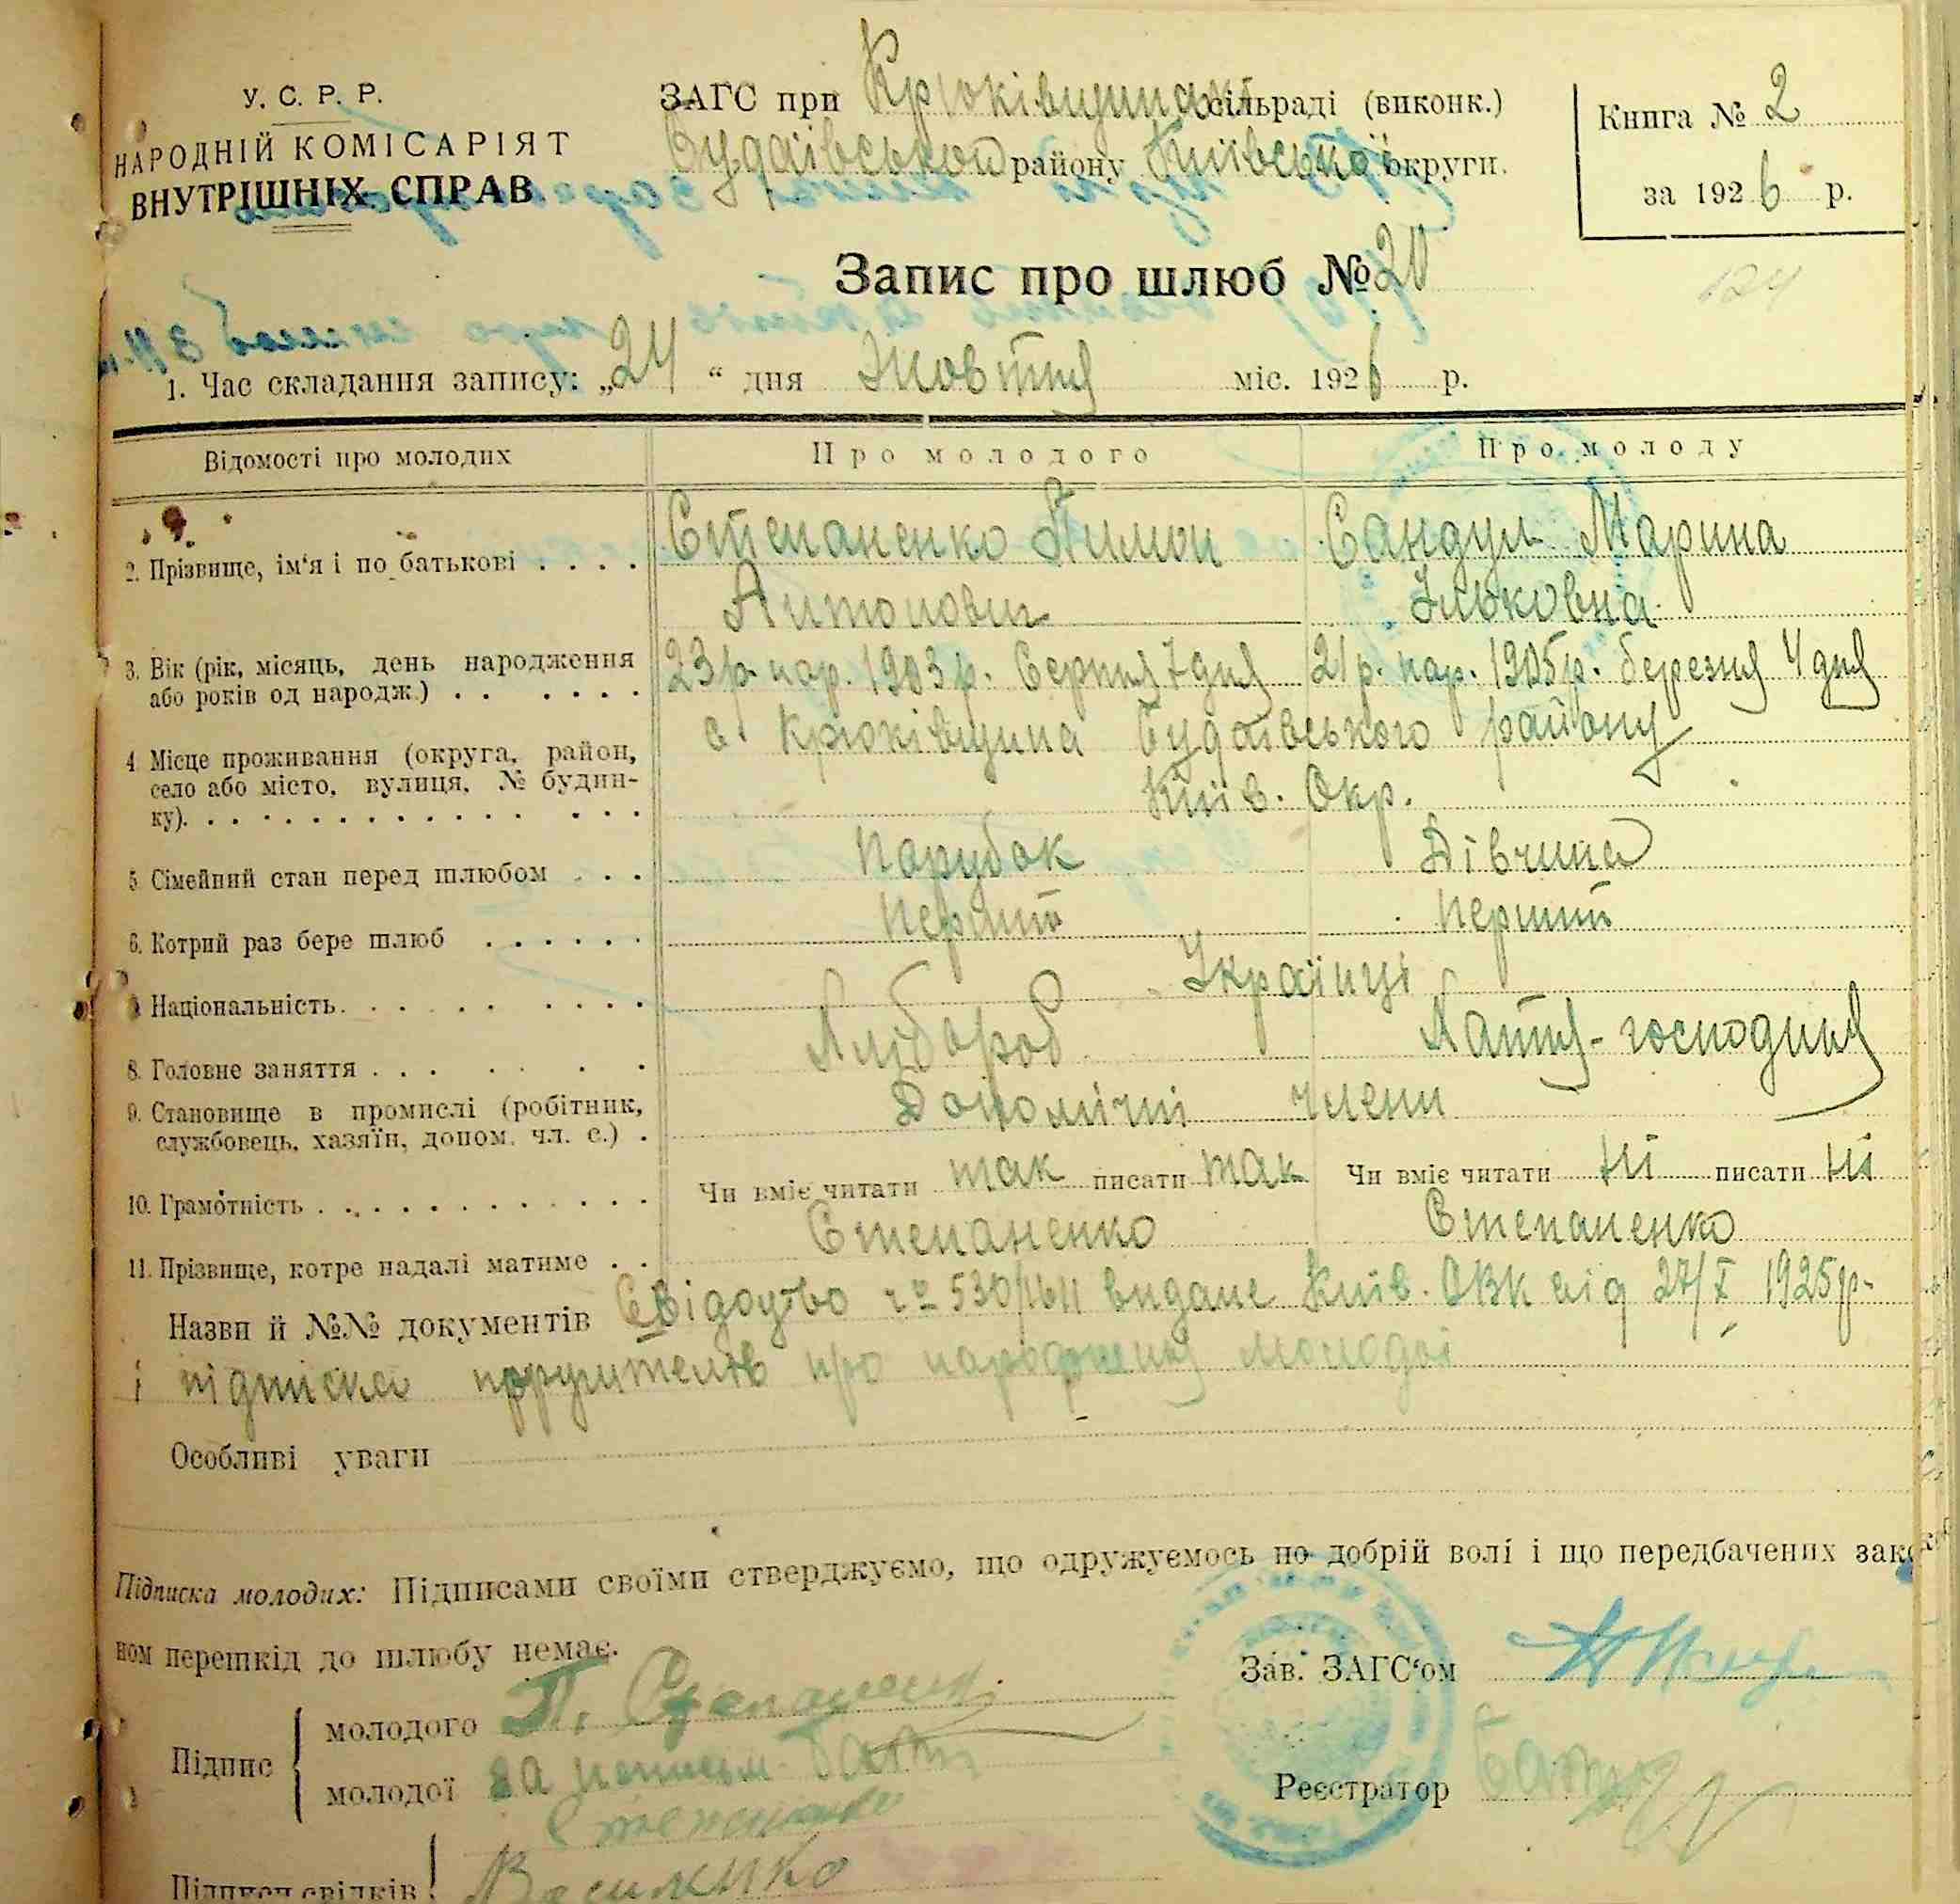 У. С. Р. Р.
НАРОДНІЙ КОМІСАРІЯТ
ВНУТРІШНІХ СПРАВ
ЗАГС при Крюківщинській сільраді (виконк.)
Будаївської району Київської округи.
Книга № 2
за 1926 р.
Запис про шлюб № 20
124
1. Час складання запису: „24“ дня Жовтня міс. 1926 р.
Відомості про молодих Про молодого Про молоду
2. Прізвище, ім'я і по батькові . . . . Степаненко Пимон Сандул Марина
Антонович Ільковна
3. Вік (рік, місяць, день народження 23 р. нар. 1903 р. Серпня 7 дня 21 р. нар. 1905 р. березня 4 дня
або років од народж.) . . . . . .
4 Місце проживання (округа, район, с Крюківщина Будаївського району
село або місто, вулиця, № будин-
ку). . . . . . . . . . . . . . . . Київ. Окр.
5. Сімейний стан перед шлюбом . . . Парубок Дівчина
6. Котрий раз бере шлюб . . . . . . Перший Перший
Національність. . . . . . . . . Українці
8. Головне заняття . . . . . . . Хлібороб Хатня-господиня
9. Становище в промислі (робітник, Допомічні члени
службовець, хазяїн, допом. чл. с.) .
10. Грамотність . . . . . . . . . . . . Чи вміє читати так писати так Чи вміє читати ні писати ні
11. Прізвище, котре надалі матиме . . Степаненко Степаненко
Назви й №№ документів Свідоцтво № 530/1611 видане Київ. ОВК від 27/X 1925 р.
і підписка поручителів про народження молодої
Особливі уваги
Підписка молодих: Підписами своїми стверджуємо, що одружуємось по добрій волі і що передбачених зако-
ном перешкід до шлюбу немає.
Підпис
молодого П. Степаненко
молодої за неписьм.
Степаненко
Підписи свідків
Зав. ЗАГС'ом
Реєстратор